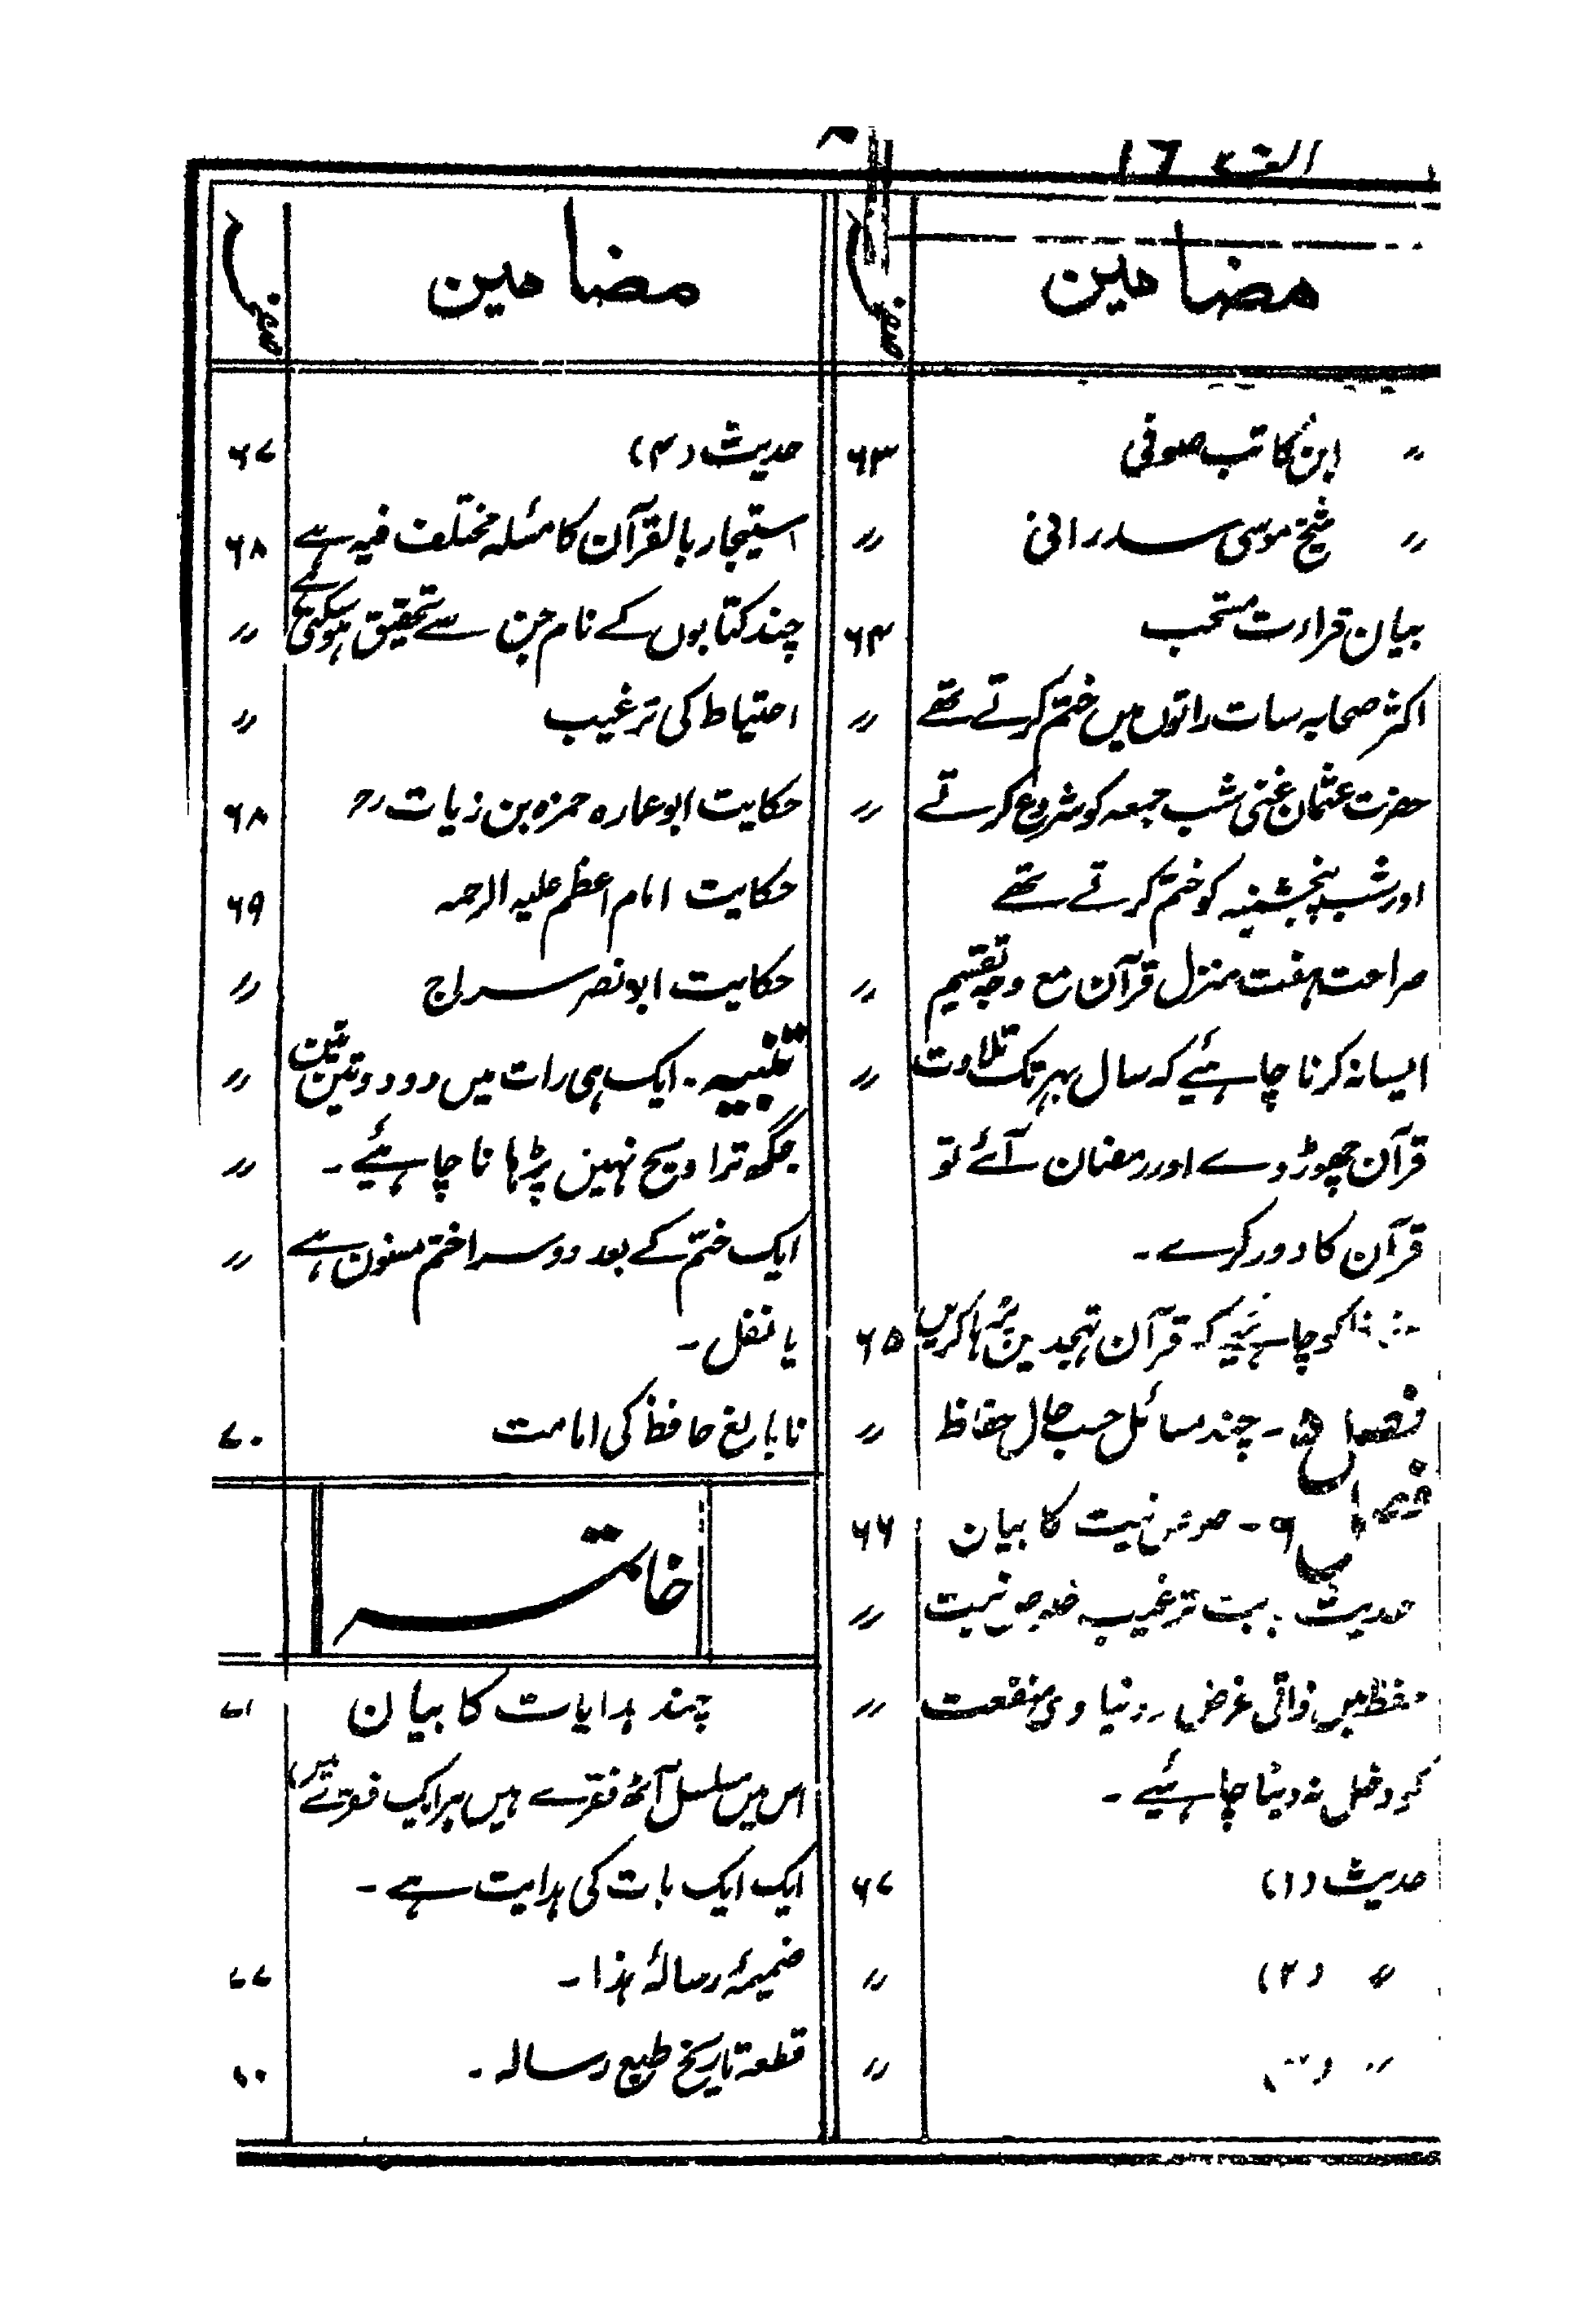 مضامین
صفحہ
〃 ابن کاتب صوفی ۶۳
〃 شیخ موسی سدرانی 〃
بیان قراءت مستحب ۶۴
اکثر صحابہ سات راتوں میں ختم کرتے تھے 〃
حضرت عثمان غنی شب جمعہ کو شروع کرتے 〃
اور شب پنجشنبہ کو ختم کرتے تھے
صراحت ہفت منزل قرآن مع وجہ تقسیم 〃
ایسا نہ کرنا چاہئیے کہ سال بہر تک تلاوت 〃
قرآن چھوڑ دے اور رمضان آئے تو
قرآن کا دور کرے۔
کو چاہئیے کہ قرآن تہجد میں پڑہا کریں ۶۵
فصل ۵ - چند مسائل حسب حال حفاظ 〃
فصل ۶ - خلوص نیت کا بیان ۶۶
حدیث بہت ترغیب خلوص نیت 〃
حفظ میں ذاتی غرض دنیاوی منفعت 〃
کو دخل نہ دینا چاہئیے -
حدیث (۱) ۶۷
〃 (۲) 〃
〃 〃
مضامین
صفحہ
حدیث (۴) ۶۷
استیجار بالقرآن کا مسئلہ مختلف فیہ ہے ۶۸
چند کتابوں کے نام جن سے تحقیق ہو سکتی ہے 〃
احتیاط کی ترغیب 〃
حکایت ابو عمارہ حمزہ بن زیات رح ۶۸
حکایت امام اعظم علیہ الرحمہ ۶۹
حکایت ابو نصر سراج 〃
تنبیہ۔ ایک ہی رات میں دو دو تین تین 〃
جگہ تراویح نہیں پڑہانا چاہئیے۔ 〃
ایک ختم کے بعد دوسرا ختم مسنون ہے 〃
یا نفل۔
نابالغ حافظ کی امامت ۷۰
خاتمہ
چند ہدایات کا بیان ۷۱
اس میں مسلسل آٹھ فقرے ہیں ہر ایک فقرے میں
ایک ایک بات کی ہدایت ہے۔
ضمیمۂ رسالۂ ہذا۔ ۷۷
قطعۂ تاریخ طبع رسالہ۔